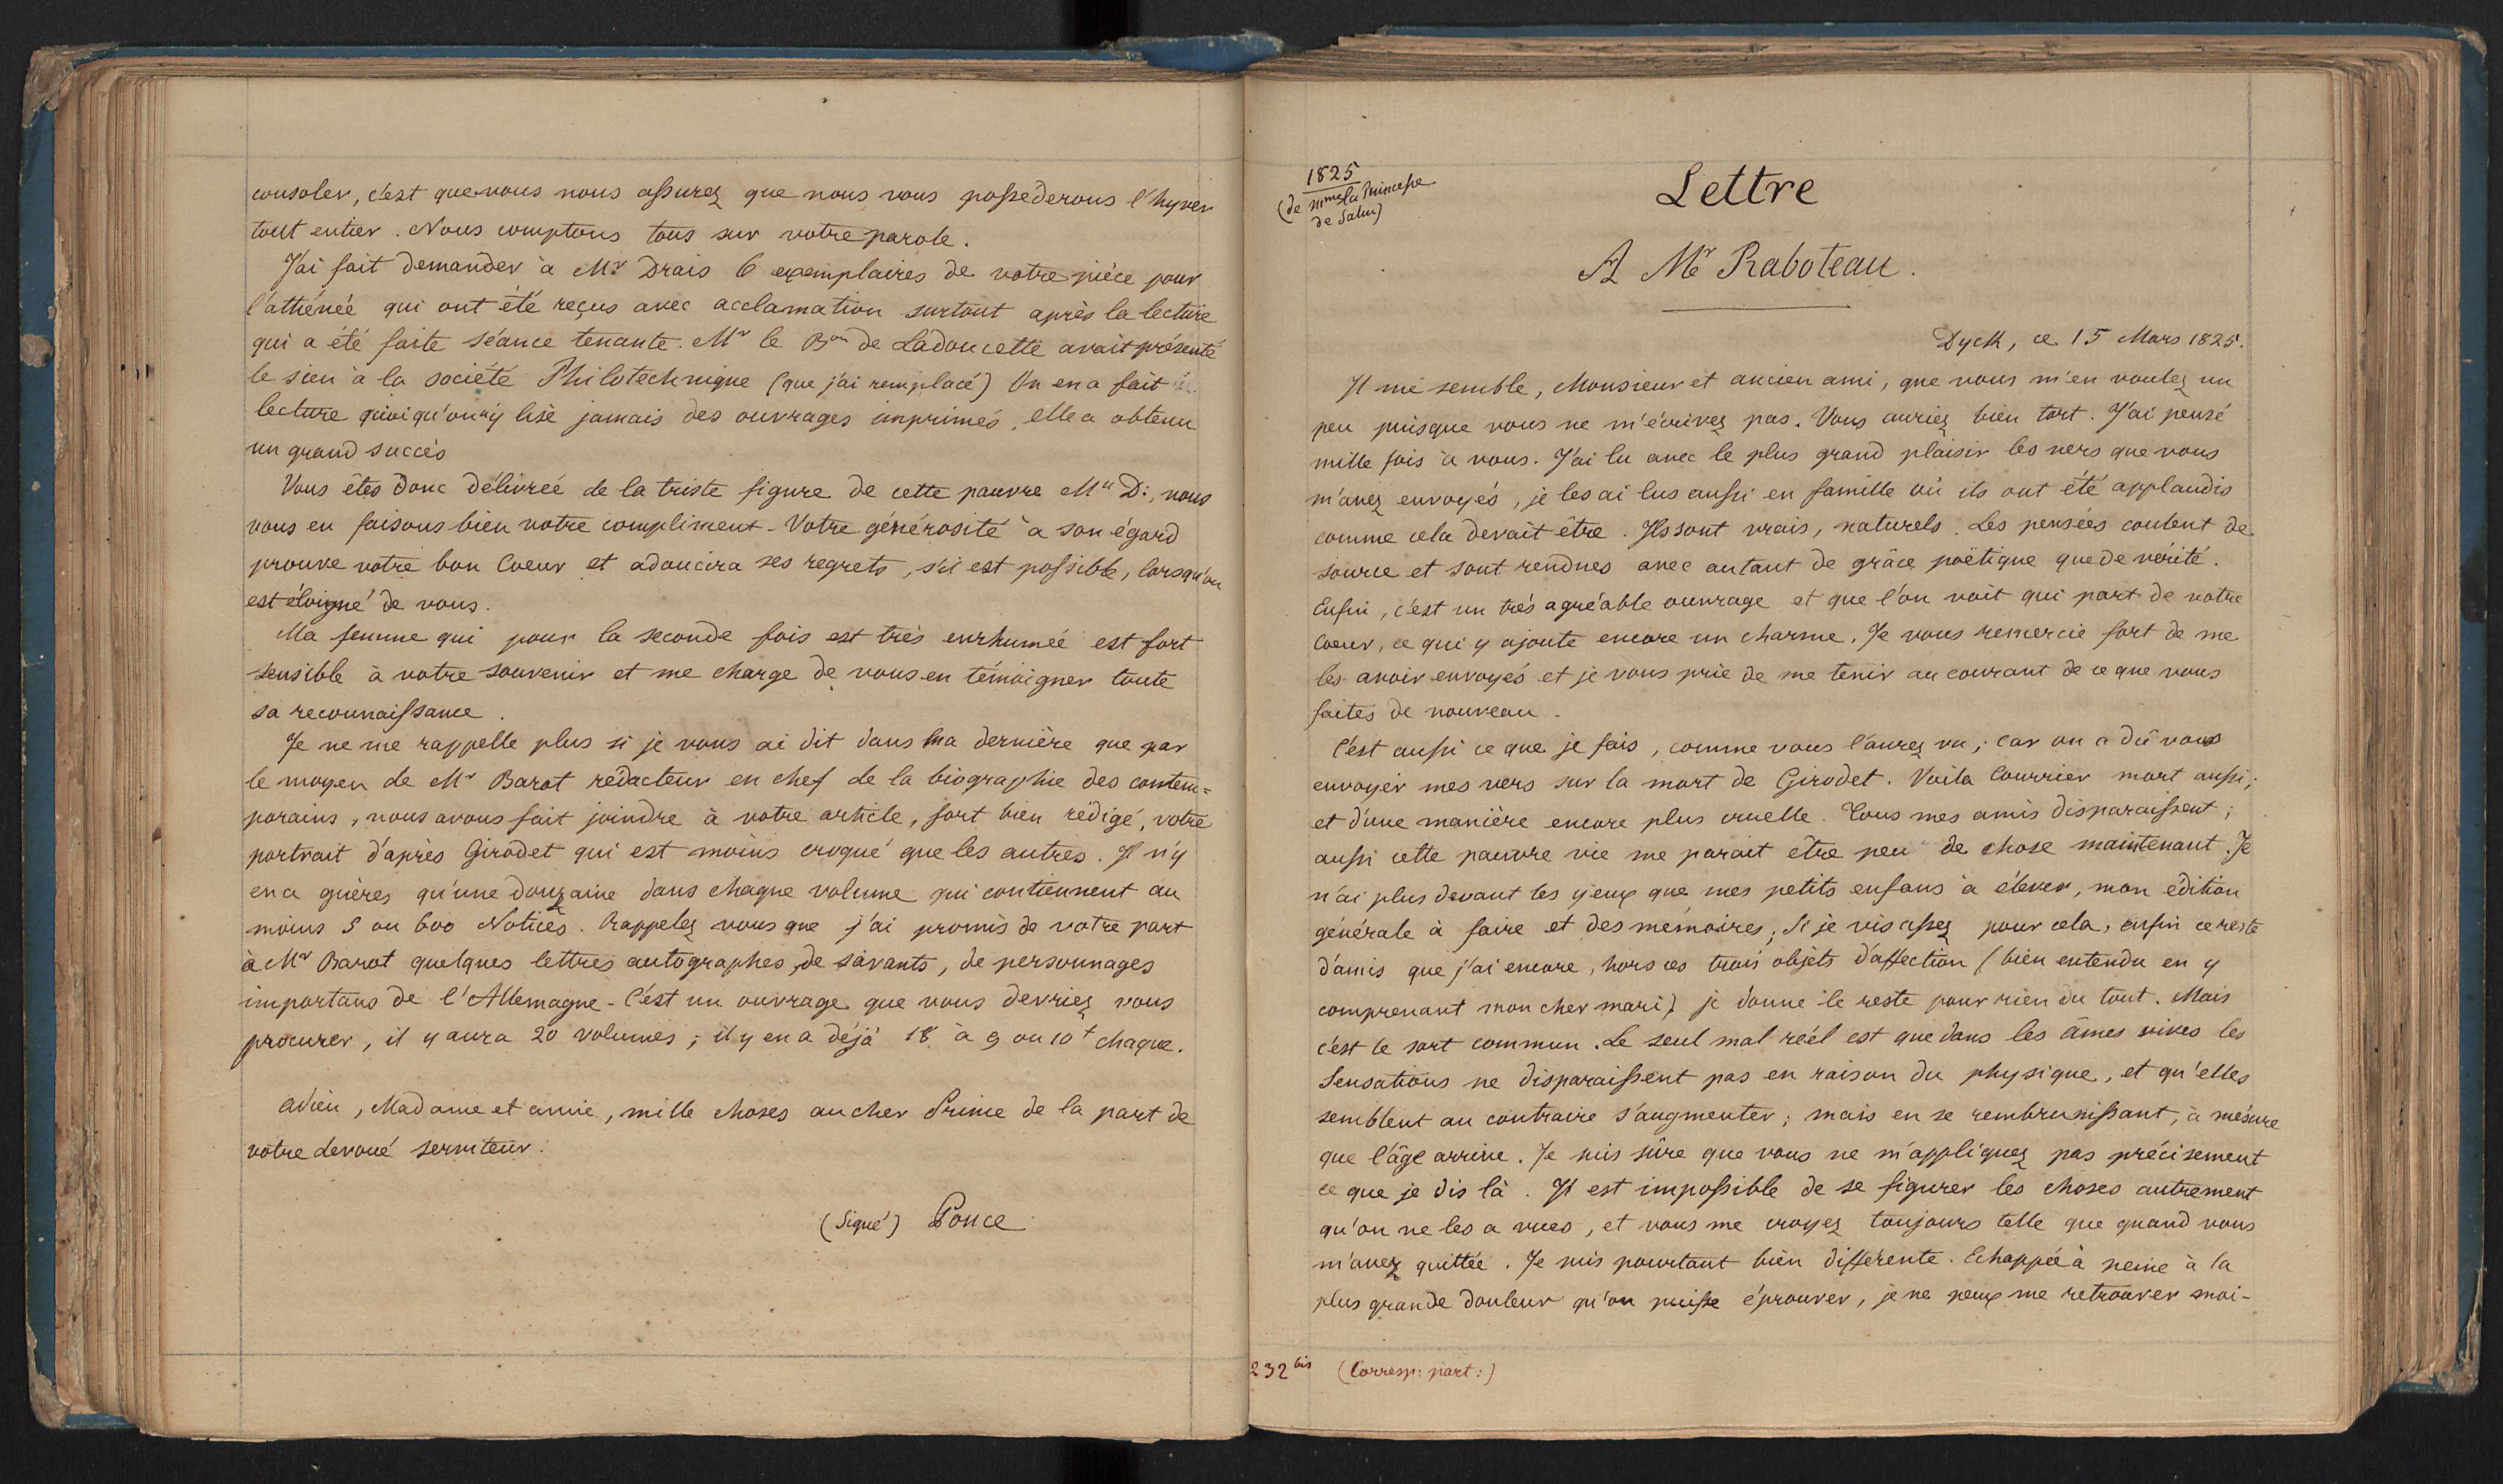 consoler, c'est que vous nous assurez que nous vous possederons l'hyver
tout entier. Nous comptons tous sur votre parole.
J'ai fait demander à Mr Drais 6 exemplaires de votre pièce pour
l'athénée qui ont été reçus avec acclamation surtout après la lecture
qui a été faite séance tenante. Mr le Bon de Ladoucette avait présenté
le sien à la société Philotechnique (que j'ai remplacé) On en a fait
lecture quoiqu'on n'y lise jamais des ouvrages imprimés, elle a obtenu
un grand succès
Vous êtes donc délivrée de la triste figure de cette pauvre Mlle D:, nous
vous en faisons bien notre compliment - Votre générosité à son égard
prouve votre bon Coeur et adoucira ses regrets, s'il est possible, lorsqu'on
est éloigné de vous.
Ma femme qui pour la seconde fois est très enrhumée est fort
sensible à votre souvenir et me charge de vous en témoigner toute
sa reconnaissance.
Je ne me rappelle plus si je vous ai dit dans ma dernière que par
le moyen de Mr Barot rédacteur en chef de la biographie des contem=
porains, nous avons fait joindre à votre article, fort bien rédigé, votre
portrait d'après Girodet qui est moins croqué que les autres. Il n'y
en a guères qu'une douzaine dans chaque volume qui contiennent au
moins 5 ou 600 Notices. Rappelez vous que j'ai promis de votre part
à Mr Barot quelques lettres autographes, de savants, de personnages
importans de l'Allemagne - C'est un ouvrage que vous devriez vous
procurer, il y aura 20 volumes; il y en a déjà 18 à 9 ou 10 t chaque.
adieu, Madame et amie, mille choses au cher Prince de la part de
votre devoué serviteur.
(Signé) Ponce
1825
(de Mme la Princesse
de Salm)
Lettre
A Mr Raboteau.
Dyck, ce 15 Mars 1825.
Il me semble, Monsieur et ancien ami, que vous m'en voulez un
peu puisque vous ne m'écrivez pas. Vous auriez bien tort. J'ai pensé
mille fois à vous. J'ai lu avec le plus grand plaisir les vers que vous
m'avez envoyés, je les ai lus aussi en famille où ils ont été applaudis
comme cela devait être. Ils sont vrais, naturels. Les pensées coulent de
source et sont rendues avec autant de grâce poëtique que de vérité.
Enfin, c'est un très agréable ouvrage et que l'on voit qui part de votre
Coeur, ce qui y ajoute encore un charme. Je vous remercie fort de me
les avoir envoyés et je vous prie de me tenir au courant de ce que vous
faites de nouveau.
C'est aussi ce que je fais, comme vous l'aurez vu; car on a dû vous
envoyer mes vers sur la mort de Girodet. Voila Courrier mort aussi;
et d'une manière encore plus cruelle. Tous mes amis disparaissent;
aussi cette pauvre vie me parait être peu de chose maintenant. Je
n'ai plus devant les yeux que mes petits enfans à élever, mon édition
générale à faire et des mémoires; Si je vis assez pour cela, enfin ce reste
d'amis que j'ai encore, hors ces trois objets d'affection (bien entendu en y
comprenant mon cher mari) je donne le reste pour rien du tout. Mais
c'est le sort commun. Le seul mal réel est que dans les âmes vives les
Sensations ne disparaissent pas en raison du physique, et qu'elles
semblent au contraire s'augmenter; mais en se rembrunissant, à mésure
que l'âge arrive. Je suis sûre que vous ne m'appliquez pas précisement
ce que je dis là. Il est impossible de se figurer les choses autrement
qu'on ne les a vues, et vous me croyez toujours telle que quand vous
m'avez quittée. Je suis pourtant bien différente. Echappée à peine à la
plus grande douleur qu'on puisse éprouver, je ne peux me retrouver moi-
232 bis (Corresp: part:)